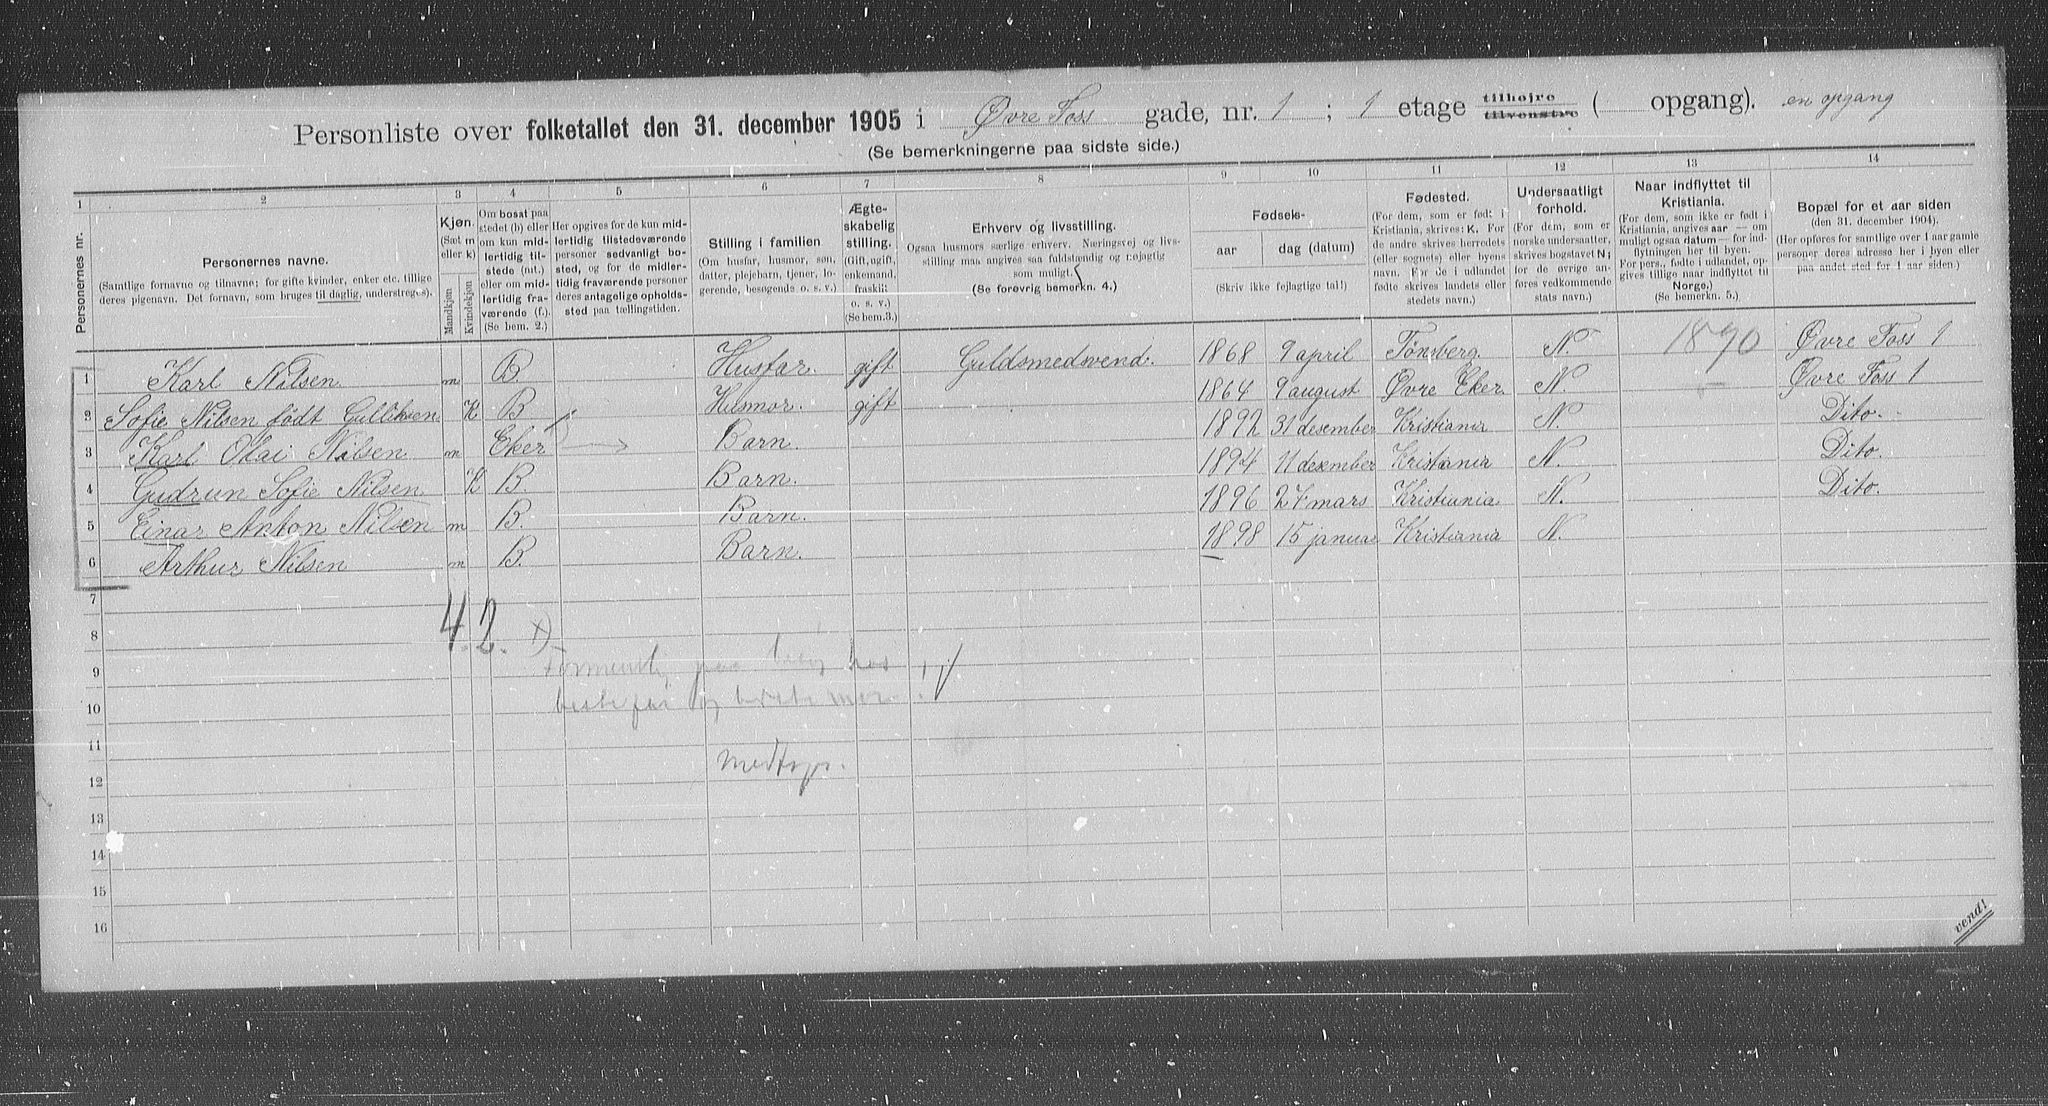 Personliste over folketallet den 31. december 1905 i Øvre Foss gade, nr. 1 ; 1 etage tilhøjre tilvenstre ( opgang). en opgang
(Se bemerkningerne paa sidste side.)
1 2 3 4 5 6 7 8 9 10 11 12 13 14
Personernes nr.
Personernes navne.
(Samtlige fornavne og tilnavne; for gifte kvinder, enker etc. tillige deres pigenavn. Det fornavn, som bruges til daglig, understreges).
Kjøn.
(Sæt m eller k)
Mandkjøn
Kvindekjøn
Om bosat paa stedet (b) eller om kun midlertidig tilstede (mt.) eller om midlertidig fraværende (f.). (Se bem. 2.)
Her opgives for de kun midlertidig tilstedeværende personer sedvanligt bosted, og for de midlertidig fraværende personer deres antagelige opholdssted paa tællingstiden.
Stilling i familien
(Om husfar, husmor, søn, datter, plejebarn, tjener, logerende, besøgende o. s. v.)
Ægteskabelig stilling.
(Gift, ugift, enkemand, fraskilt o. s. v.) (Se bem.3.)
Erhverv og livsstilling.
Ogsaa husmors særlige erhverv. Næringsvej og livsstilling maa angives saa fuldstændig og nøjagtig som muligt.
(Se forøvrig bemerkn. 4.)
Fødsels-
aar dag (datum)
(Skriv ikke fejlagtige tal!)
Fødested.
(For dem, som er født i Kristiania, skrives: K. For de andre skrives herredets (eller sognets) eller byens navn. For de i udlandet fødte skrives landets eller stedets navn.)
Undersaatligt forhold.
(For dem, som er norske undersaatter, skrives bogstavet N; for de øvrige anføres vedkommende stats navn.)
Naar indflyttet til Kristiania.
(For dem, som ikke er født i Kristiania, angives aar — om muligt ogsaa datum — for indflytningen her til byen. For pers., fødte i udlandet, opgives tillige naar indflyttet til Norge.)
(Se bemerkn. 5.)
Bopæl for et aar siden
(den 31. december 1904).
(Her opføres for samtlige over 1 aar gamle personer deres adresse her i byen eller paa andet sted for 1 aar siden.)
1 Karl Nilsen m B. Husfar. gift Guldsmedsvend. 1868 9 april Tønsberg. N. 1890 Øvre Foss 1
2 Sofie Nilsen født Gulliksen K B Husmor. gift 1864 9 august Øvre Eker N Øvre Foss 1
3 Karl Olai Nilsen m Eker Barn. 1892 31 desember Kristiania N. Dito.
4 Gudrun Sofie Nilsen K B Barn. 1894 11 desember Kristiania N. Dito.
5 Einar Anton Nilsen m B. Barn. 1896 27 mars Kristiania N. Dito.
6 Arthur Nilsen m B. Barn. 1898 15 januar Kristiania N.
7
8 4. 2. x)
9 paa besøg hos
10 bestefar og bestemor
11
12
13
14
15
16
vend!